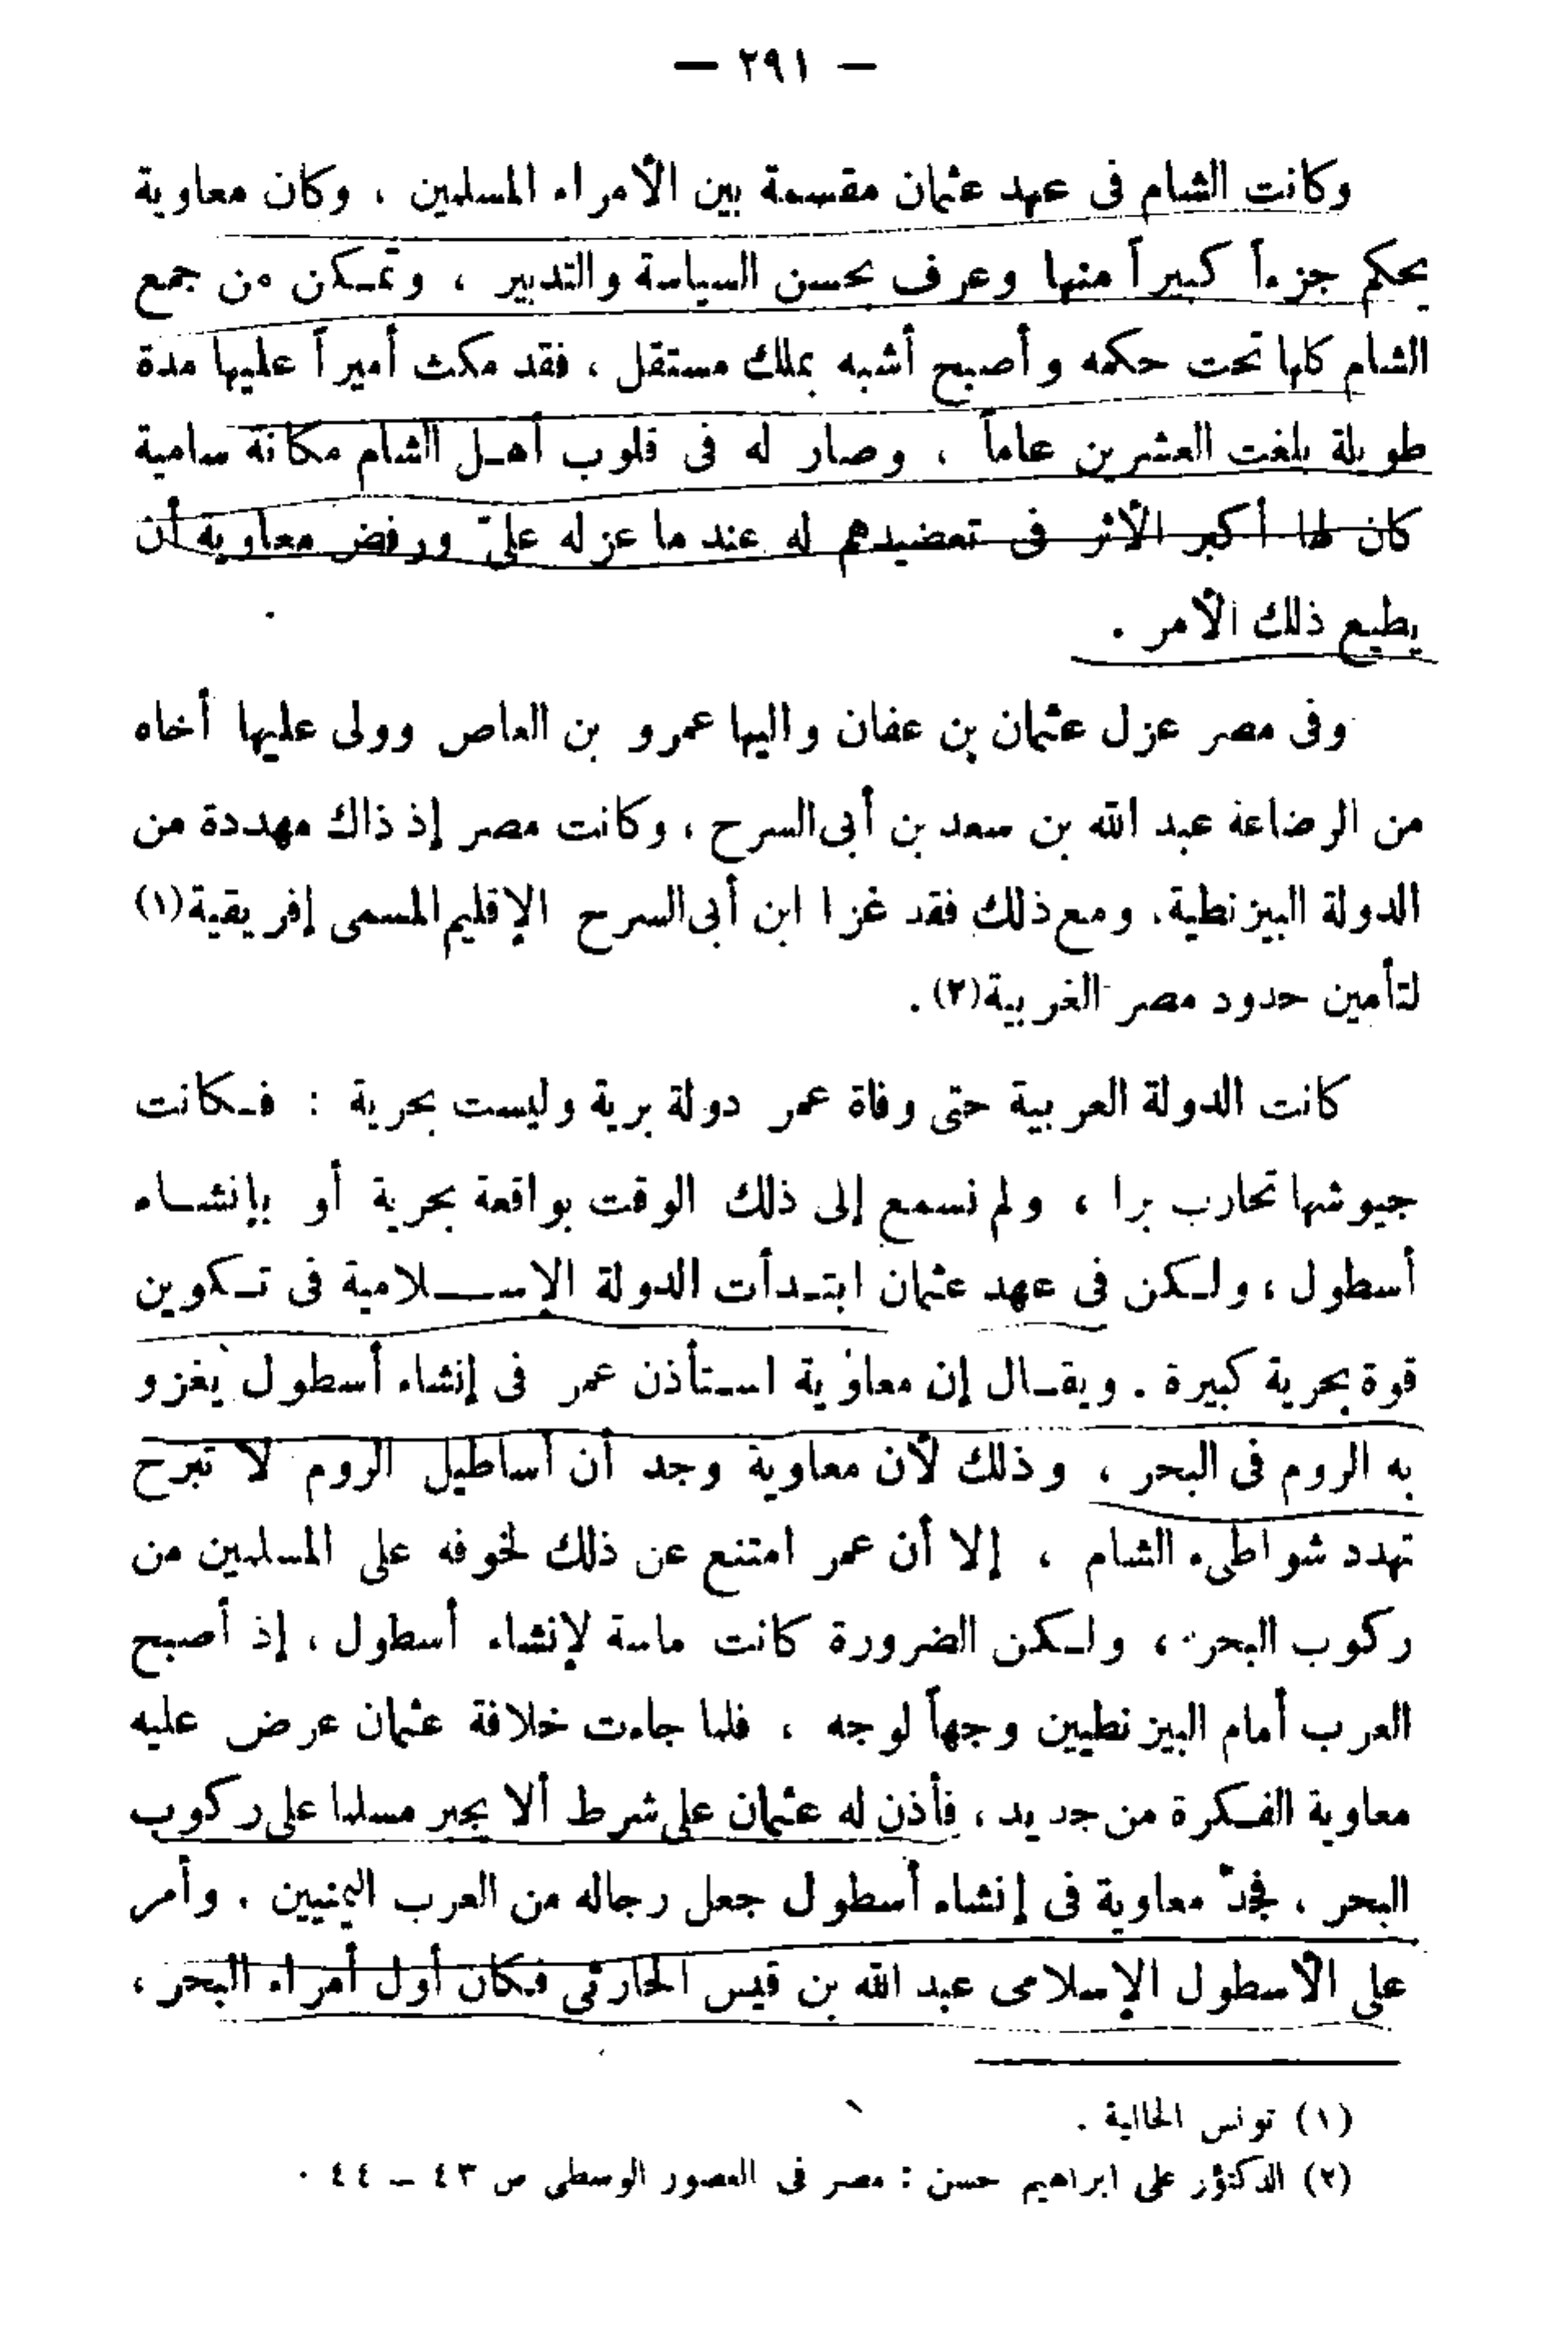 — ٢٩١ —
وكانت الشام فى عهد عثمان مقسمة بين الأمراء المسلمين ، وكان معاوية
يحكم جزءاً كبيراً منها وعرف بحسن السياسة والتدبير ، وتمكن من جمع
الشام كلها تحت حكمه وأصبح أشبه بملك مستقل ، فقد مكث أميراً عليها مدة
طويلة بلغت العشرين عاماً ، وصار له فى قلوب أهل الشام مكانة سامية
كان لها أكبر الأثر فى تعضيدهم له عند ما عزله علىّ ورفض معاوية أن
يطيع ذلك الأمر .
وفى مصر عزل عثمان بن عفان واليها عمرو بن العاص وولى عليها أخاه
من الرضاعة عبد الله بن سعد بن أبى السرح ، وكانت مصر إذ ذاك مهددة من
الدولة البيزنطية. ومع ذلك فقد غزا ابن أبى السرح الإقليم المسمى إفريقية(١)
لتأمين حدود مصر الغربية(٢) .
كانت الدولة العربية حتى وفاة عمر دولة برية وليست بحرية : فكانت
جيوشها تحارب برا ، ولم نسمع إلى ذلك الوقت بواقعة بحرية أو بإنشاء
أسطول ، ولكن فى عهد عثمان ابتدأت الدولة الإسلامية فى تكوين
قوة بحرية كبيرة . ويقال إن معاوية استأذن عمر فى إنشاء أسطول يغزو
به الروم فى البحر ، وذلك لأن معاوية وجد أن أساطيل الروم لا تبرح
تهدد شواطىء الشام ، إلا أن عمر امتنع عن ذلك لخوفه على المسلمين من
ركوب البحر ، ولكن الضرورة كانت ماسة لإنشاء أسطول ، إذ أصبح
العرب أمام البيزنطيين وجهاً لوجه ، فلما جاءت خلافة عثمان عرض عليه
معاوية الفكرة من جديد ، فأذن له عثمان على شرط ألا يجبر مسلما على ركوب
البحر ، فجدّ معاوية فى إنشاء أسطول جعل رجاله من العرب اليمنيين . وأمر
على الأسطول الإسلامى عبد الله بن قيس الحارثى فكان أول أمراء البحر ،
(١) تونس الحالية .
(٢) الدكتور على ابراهيم حسن : مصر فى العصور الوسطى ص ٤٣ – ٤٤ .